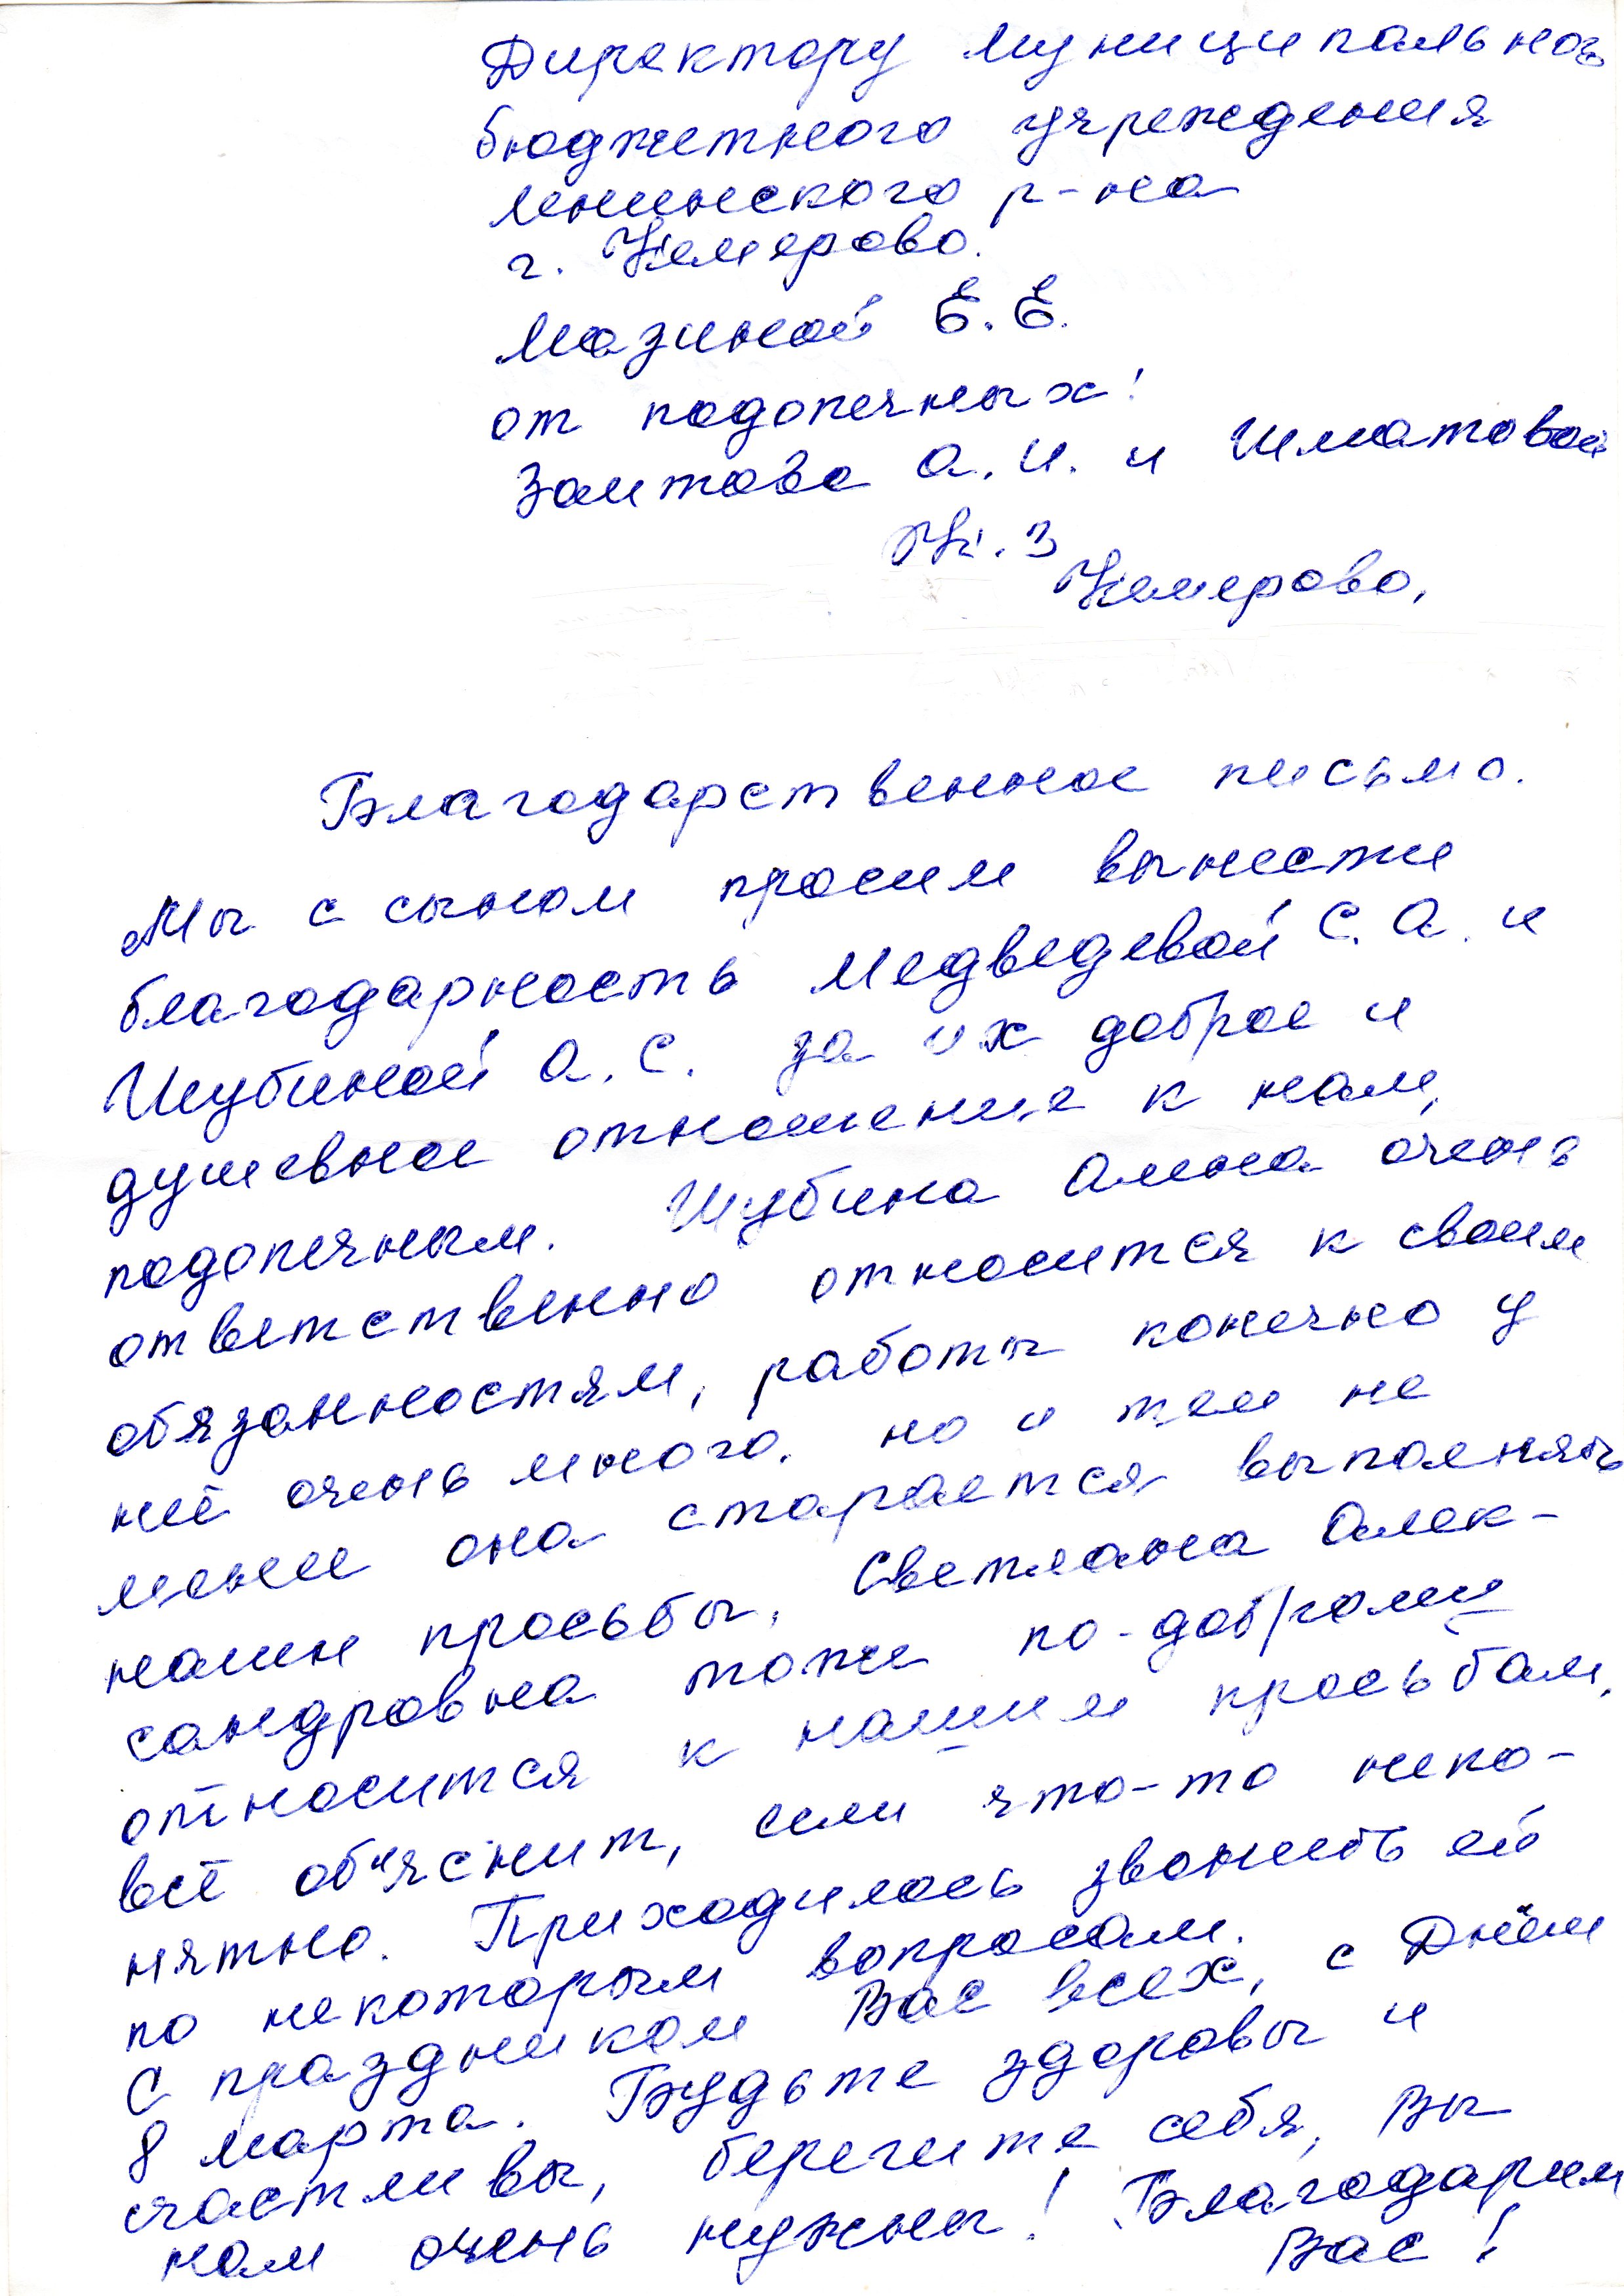 Директору муниципального
бюджетного учреждения
Ленинского р-на
г. Кемерово.
Мазиной Е.Е.
от подопечных:
Заитова А.И. и Шматовой
К.З
Кемерово,
Благодарственное письмо.
Мы с сыном просим вынести
благодарность Медведевой С.А. и
Шубиной А.С. за их доброе и
душевное отношение к нам,
подопечным. Шубина Алена очень
ответственно относится к своим
обязанностям, работы конечно у
неё очень много, но и тем не
менее она старается выполнять
наши просьбы. Светлана Алек-
сандровна тоже по-доброму
относится к нашим просьбам,
всё об"яснит, если что-то непо-
нятно. Приходилось звонить ей
по некоторым вопросам.
С праздником Вас всех, с Днём
8 марта. Будьте здоровы и
счастливы, берегите себя, Вы
нам очень нужны! Благодарим
Вас!